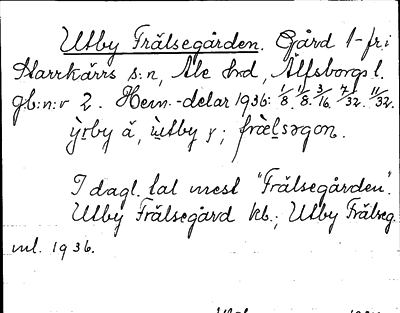 Utby Frälsegården. Gård 1-fr. i
Starrkärrs s:n, Ale hd, Älfsborgs l.
gb:n:r 2. Hem.-delar 1936: 1/8. 1/8. 3/16. 7/32. 11/32.
I dagl. tal mest "Frälsegården".
Utby Frälsegård kb.; Utby Frälseg.
ml. 1936.